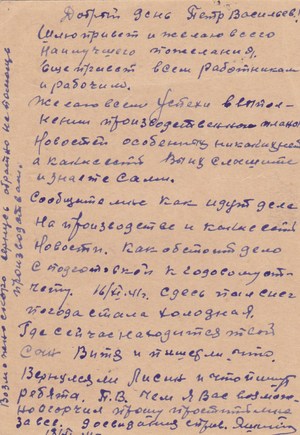 Добрый день Петр Васильев.
Шлю привет и желаю всего
наилучшего пожелания,
Еще привет всем работникам
и рабочим.
Желаю всем успехи в выпол-
нении производственного плана
Новостей особенных никаких нет
а какие есть Вы их слышите
и знаете сами.
Сообщите мне как идут дела
на производстве и какие есть
новости. Как обстоит дело
с подготовкой к годовому от-
чету. 16/XI. 41г. здесь пал снег
погода стала холодная.
Где сейчас находится твой
сын Витя и пишет ли что.
Вернулся ли Лисин и что пишут
ребята. П.В. Чем я Вас
прошу простить мне
за все. досвидания
Возможно скоро вернусь обратно на помощь
производствам.